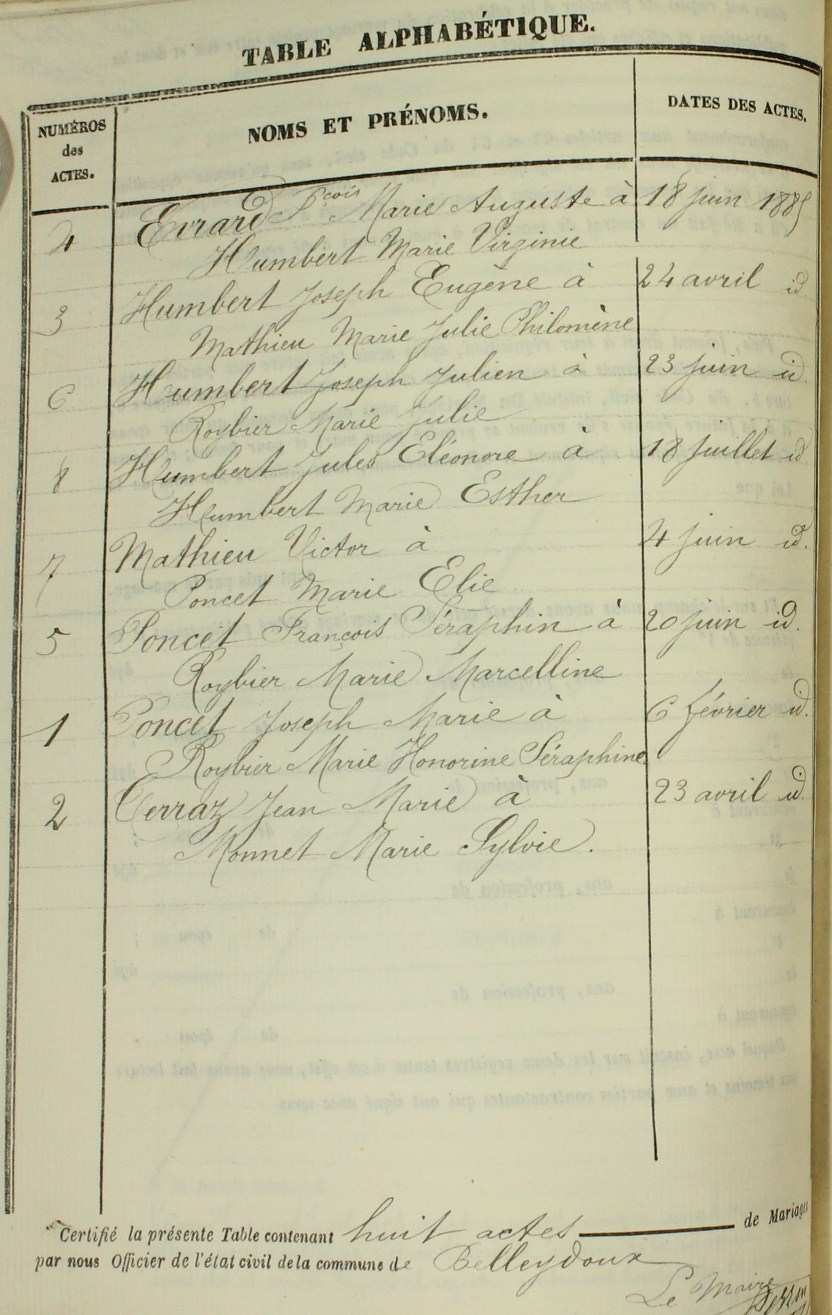 TABLE ALPHABÉTIQUE.
NUMÉROS des ACTES. NOMS ET PRÉNOMS. DATES DES ACTES.
4 Evrard Fcois Marie Auguste à 18 juin 1885
Humbert Marie Virginie
3 Humbert Joseph Eugène à 24 avril id
Mathieu Marie Julie Philomène
6 Humbert Joseph Julien à 23 juin id.
Roybier Marie Julie
8 Humbert Jules Eléonore à 18 juillet id
Humbert Marie Esther
7 Mathieu Victor à 4 juin id.
Poncet Marie Elie
5 Poncet François Séraphin à 20 juin id.
Roybier Marie Marcelline
1 Poncet Joseph Marie à 6 février id.
Roybier Marie Honorine Séraphine
2 Perraz Jean Marie à 23 avril id.
Monnet Marie Sylvie.
Certifié la présente Table contenant huit actes de Mariages
par nous Officier de l'état civil de la commune de Belleydoux
Le Maire